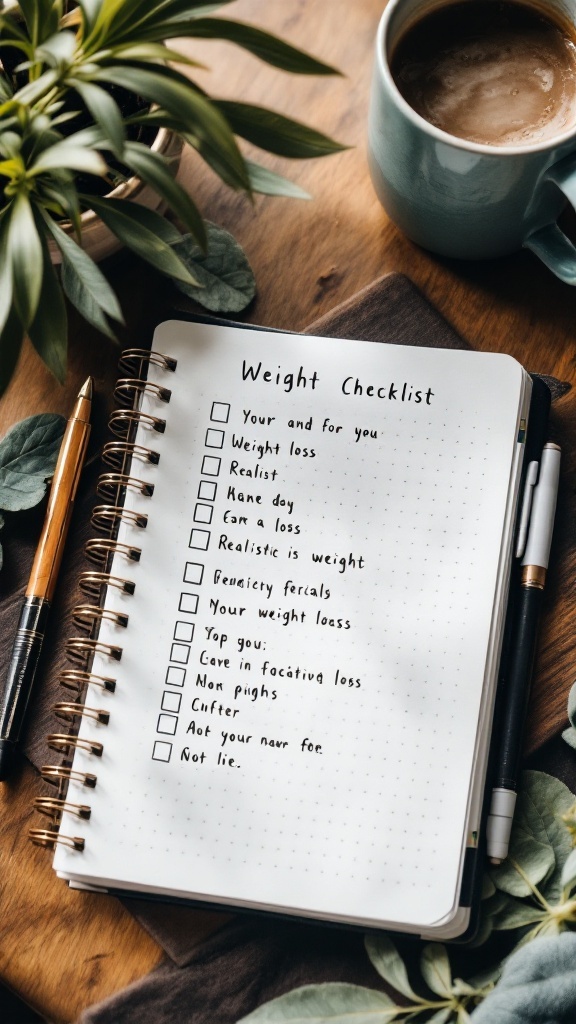 Weight Checklist
Your and for you
Weight loss
Realist
Hane day
Earn a loss
Realistic is weight
Femnicty fericals
Your weight loass
Yop you:
Care in facativd loss
Non pighs
Cifter
Aot your navr foe.
Not lie.